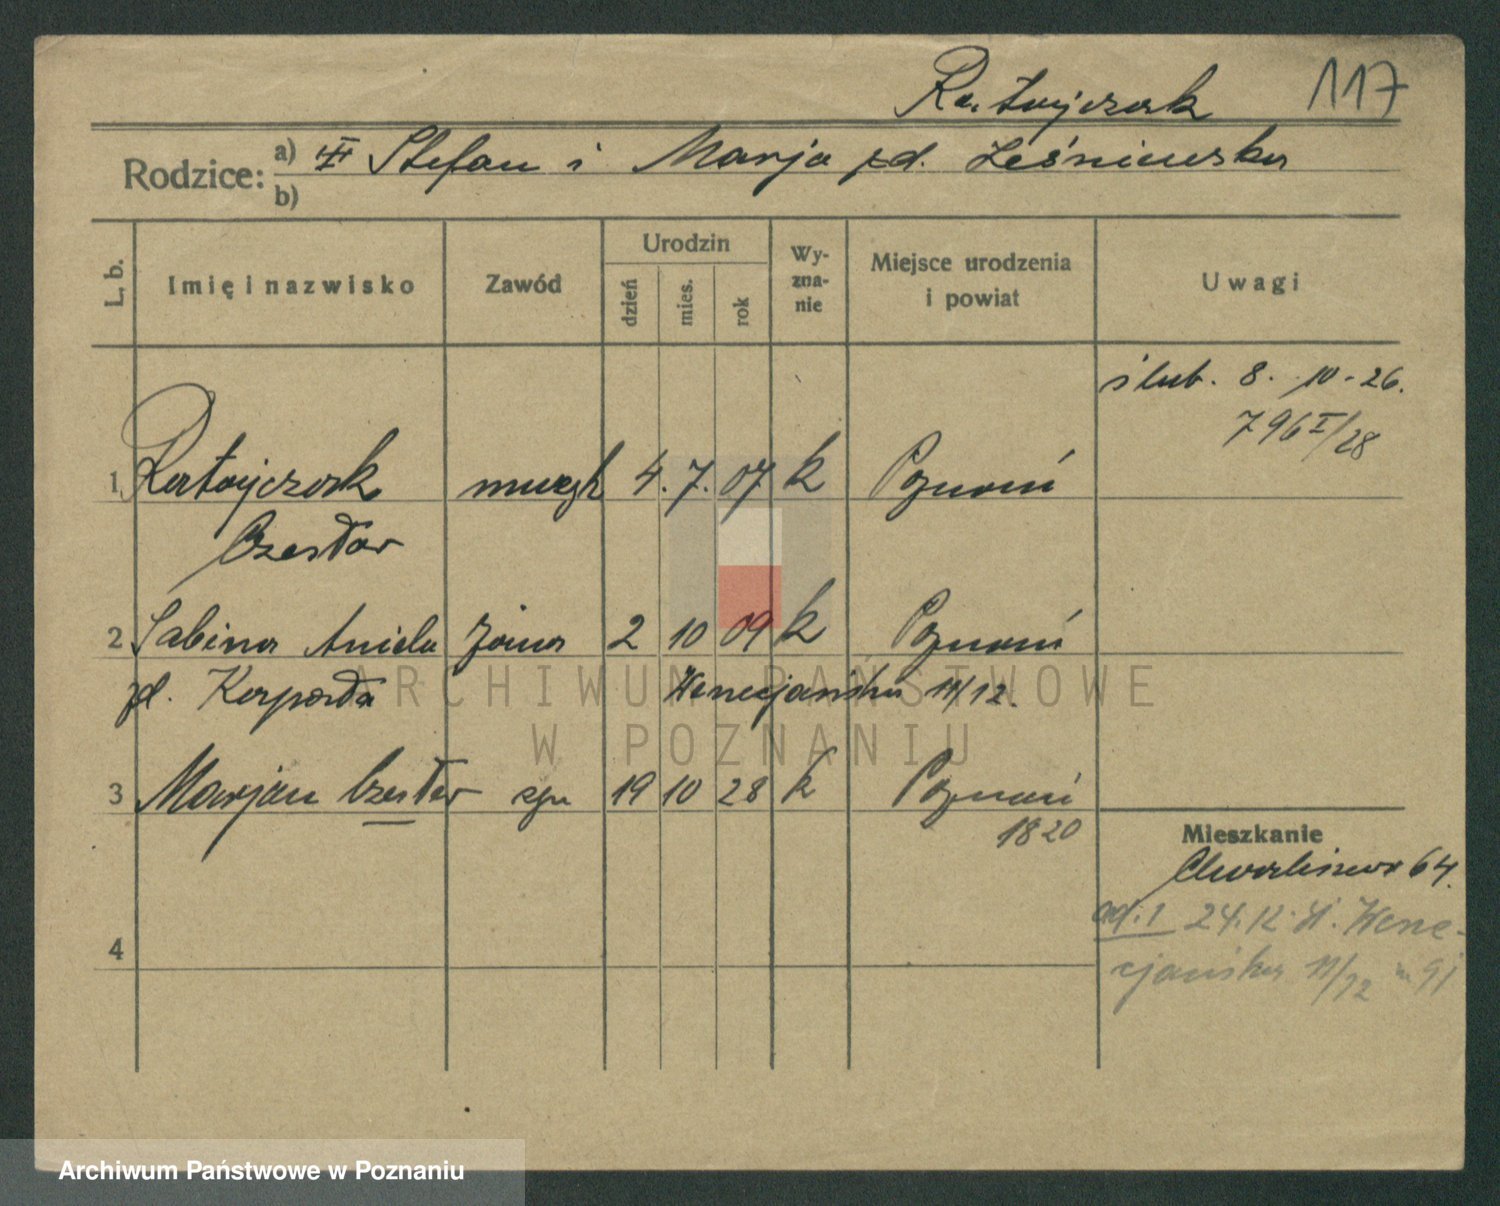 Ratajczak 117
Rodzice: a) Stefan i Marja zd. Leśniewska
b)
L. b. Imię i nazwisko Zawód Urodzin dzień mies. rok Wy-zna-nie Miejsce urodzenia i powiat Uwagi
ślub. 8. 10. 26.
796 I/28
1 Ratajczak 4. 7. 07 k Poznań
Czesław
2 Sabina Aniela żona 2 10 09 k Poznań
zd. Wenecjańska 11/12.
3 Marjan Czesław syn 19 10 28 k Poznań
1820
Mieszkanie
Chwaliszewo 64.
ad. 1 24. Wene-
cjańska 11/12
4
ARCHIWUM PAŃSTWOWE
W POZNANIU
Archiwum Państwowe w Poznaniu